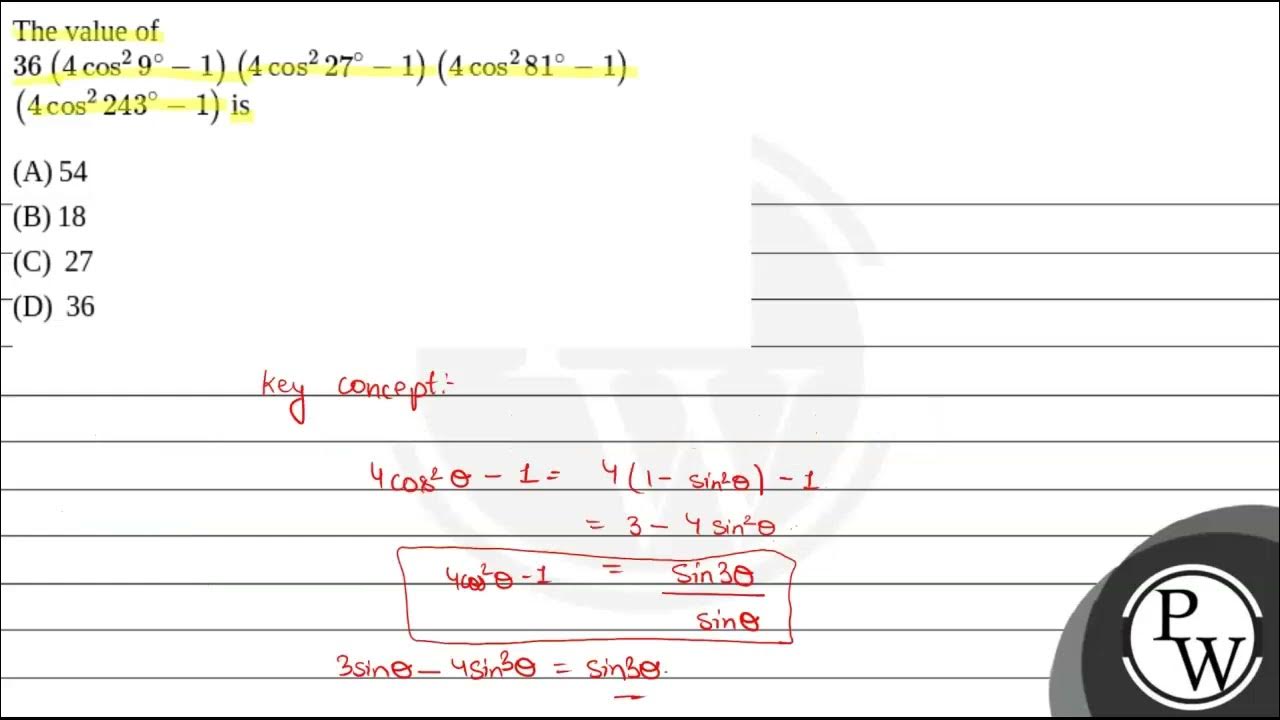 The value of
36 (4 cos² 9° − 1) (4 cos² 27° − 1) (4 cos² 81° − 1)
(4 cos² 243° − 1) is
(A) 54
(B) 18
(C) 27
(D) 36
key concept:-
4cos²θ − 1 = 4(1 − sin²θ) − 1
= 3 − 4 sin²θ
4cos²θ − 1 = sin3θ
sinθ
3sinθ − 4sin³θ = sin3θ.
P
W